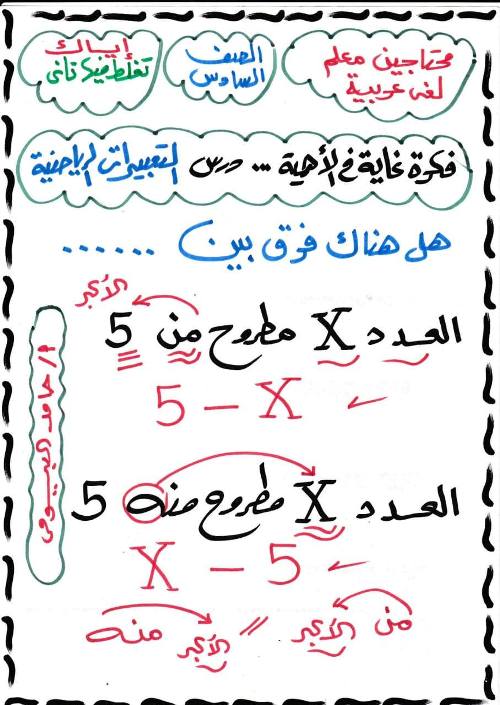 محتاجين معلم
لغة عربية
الصف
السادس
إياك
تغلط فيها تاني
فكرة غاية في الأهمية ... درس التعبيرات الرياضية
هل هناك فرق بين ......
الأكبر
العدد X مطروح من 5
5 - X
العدد X مطروح منه 5
X - 5
من الأكبر // الأكبر منه
أ/ حامد البيومى